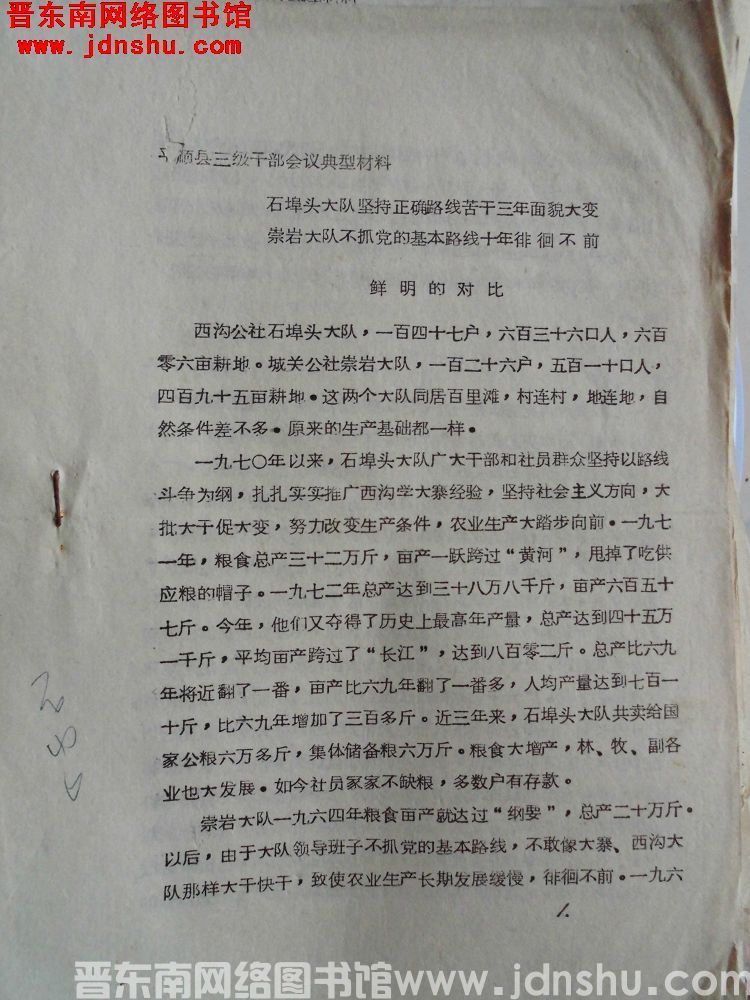 晋东南网络图书馆
www.jdnshu.com
顺县三级干部会议典型材料
石埠头大队坚持正确路线苦干三年面貌大变
崇岩大队不抓党的基本路线十年徘徊不前
鲜明的对比
西沟公社石埠头大队，一百四十七户，六百三十六口人，六百
零六亩耕地。城关公社崇岩大队，一百二十六户，五百一十口人，
四百九十五亩耕地。这两个大队同居百里滩，村连村，地连地，自
然条件差不多。原来的生产基础都一样。
一九七〇年以来，石埠头大队广大干部和社员群众坚持以路线
斗争为纲，扎扎实实推广西沟学大寨经验，坚持社会主义方向，大
批大干促大变，努力改变生产条件，农业生产大踏步向前。一九七
一年，粮食总产三十二万斤，亩产一跃跨过“黄河”，甩掉了吃供
应粮的帽子。一九七二年总产达到三十八万八千斤，亩产六百五十
七斤。今年，他们又夺得了历史上最高年产量，总产达到四十五万
一千斤，平均亩产跨过了“长江”，达到八百零二斤。总产比六九
年将近翻了一番，亩产比六九年翻了一番多，人均产量达到七百一
十斤，比六九年增加了三百多斤。近三年来，石埠头大队共卖给国
家公粮六万多斤，集体储备粮六万斤。粮食大增产，林、牧、副各
业也大发展。如今社员家家不缺粮，多数户有存款。
崇岩大队一九六四年粮食亩产就达过“纲要”，总产二十万斤。
以后，由于大队领导班子不抓党的基本路线，不敢像大寨、西沟大
队那样大干快干，致使农业生产长期发展缓慢，徘徊不前。一九六
1.
晋东南网络图书馆www.jdnshu.com